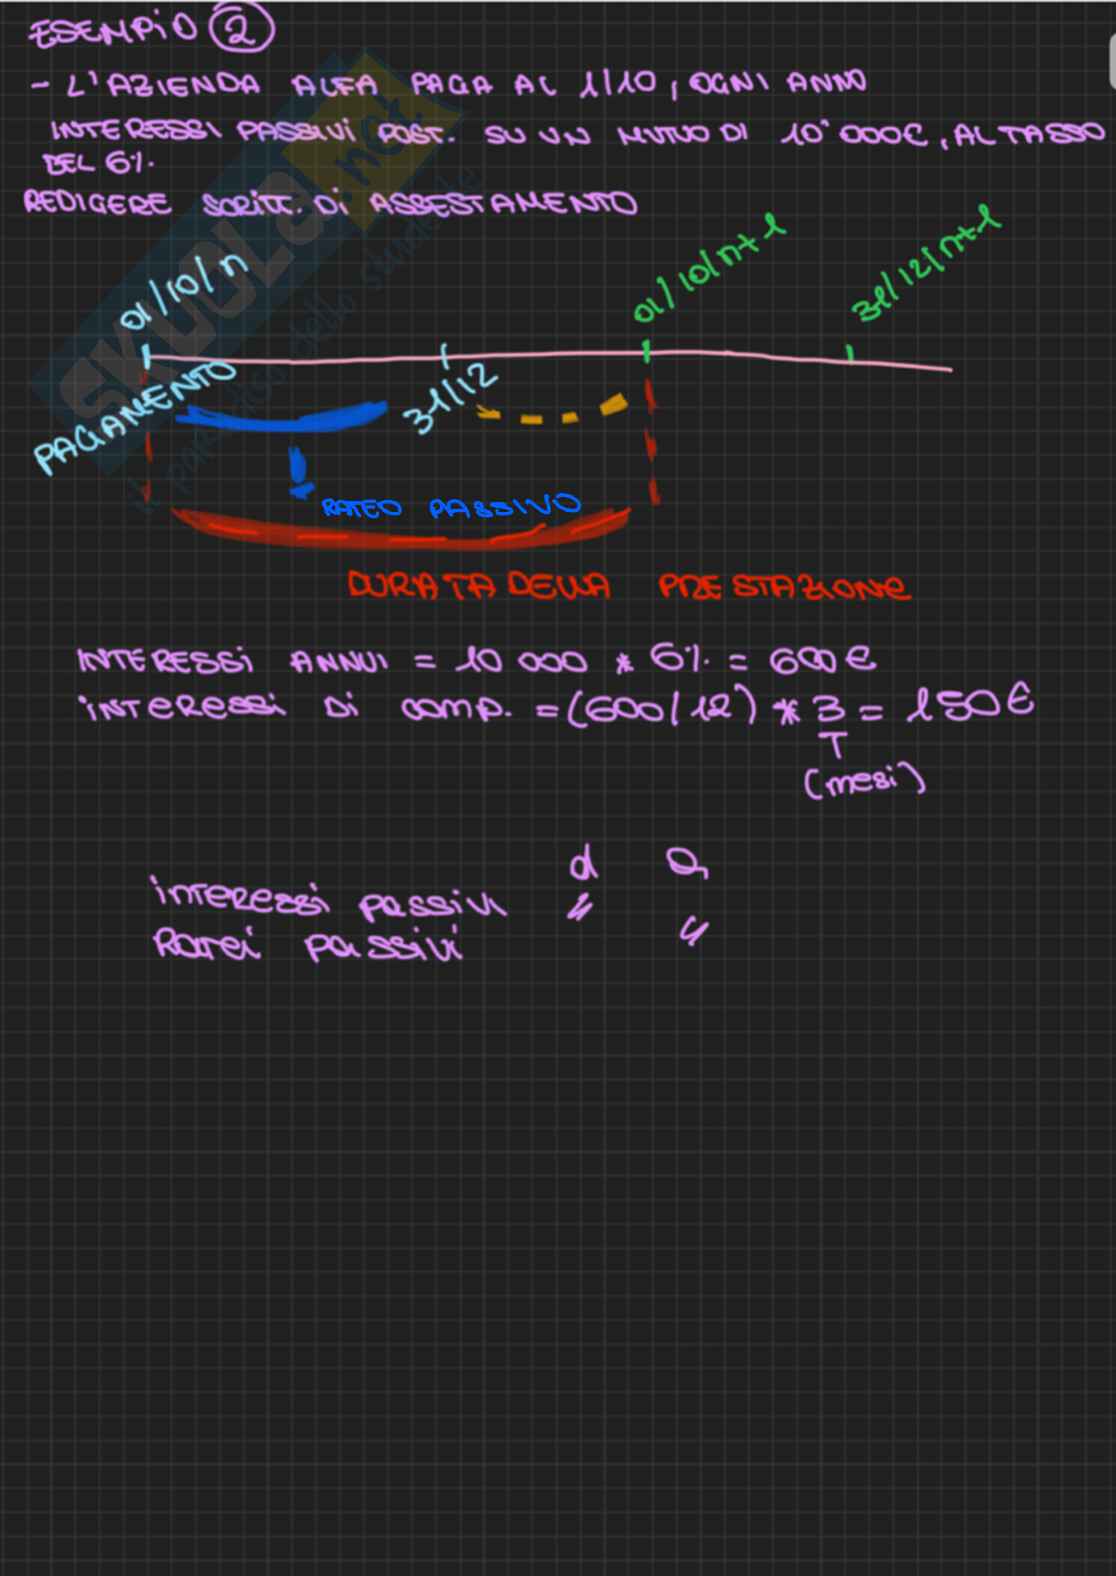 ESEMPIO 2
- L'AZIENDA ALFA PAGA AL 1/10, OGNI ANNO
INTERESSI PASSIVI POST. SU UN MUTUO DI 10'000€, AL TASSO
DEL 6%.
REDIGERE SCRITT. DI ASSESTAMENTO
01/10/n
01/10/n+1
31/12/n+1
PAGAMENTO
31/12
RATEO PASSIVO
DURATA DELLA PRESTAZIONE
INTERESSI ANNUI = 10 000 * 6% = 600€
INTERESSI DI COMP. = (600/12) * 3 = 150€
T
(mesi)
d a
interessi passivi "
Ratei passivi "
SKUOLA.net
il paradiso dello studente